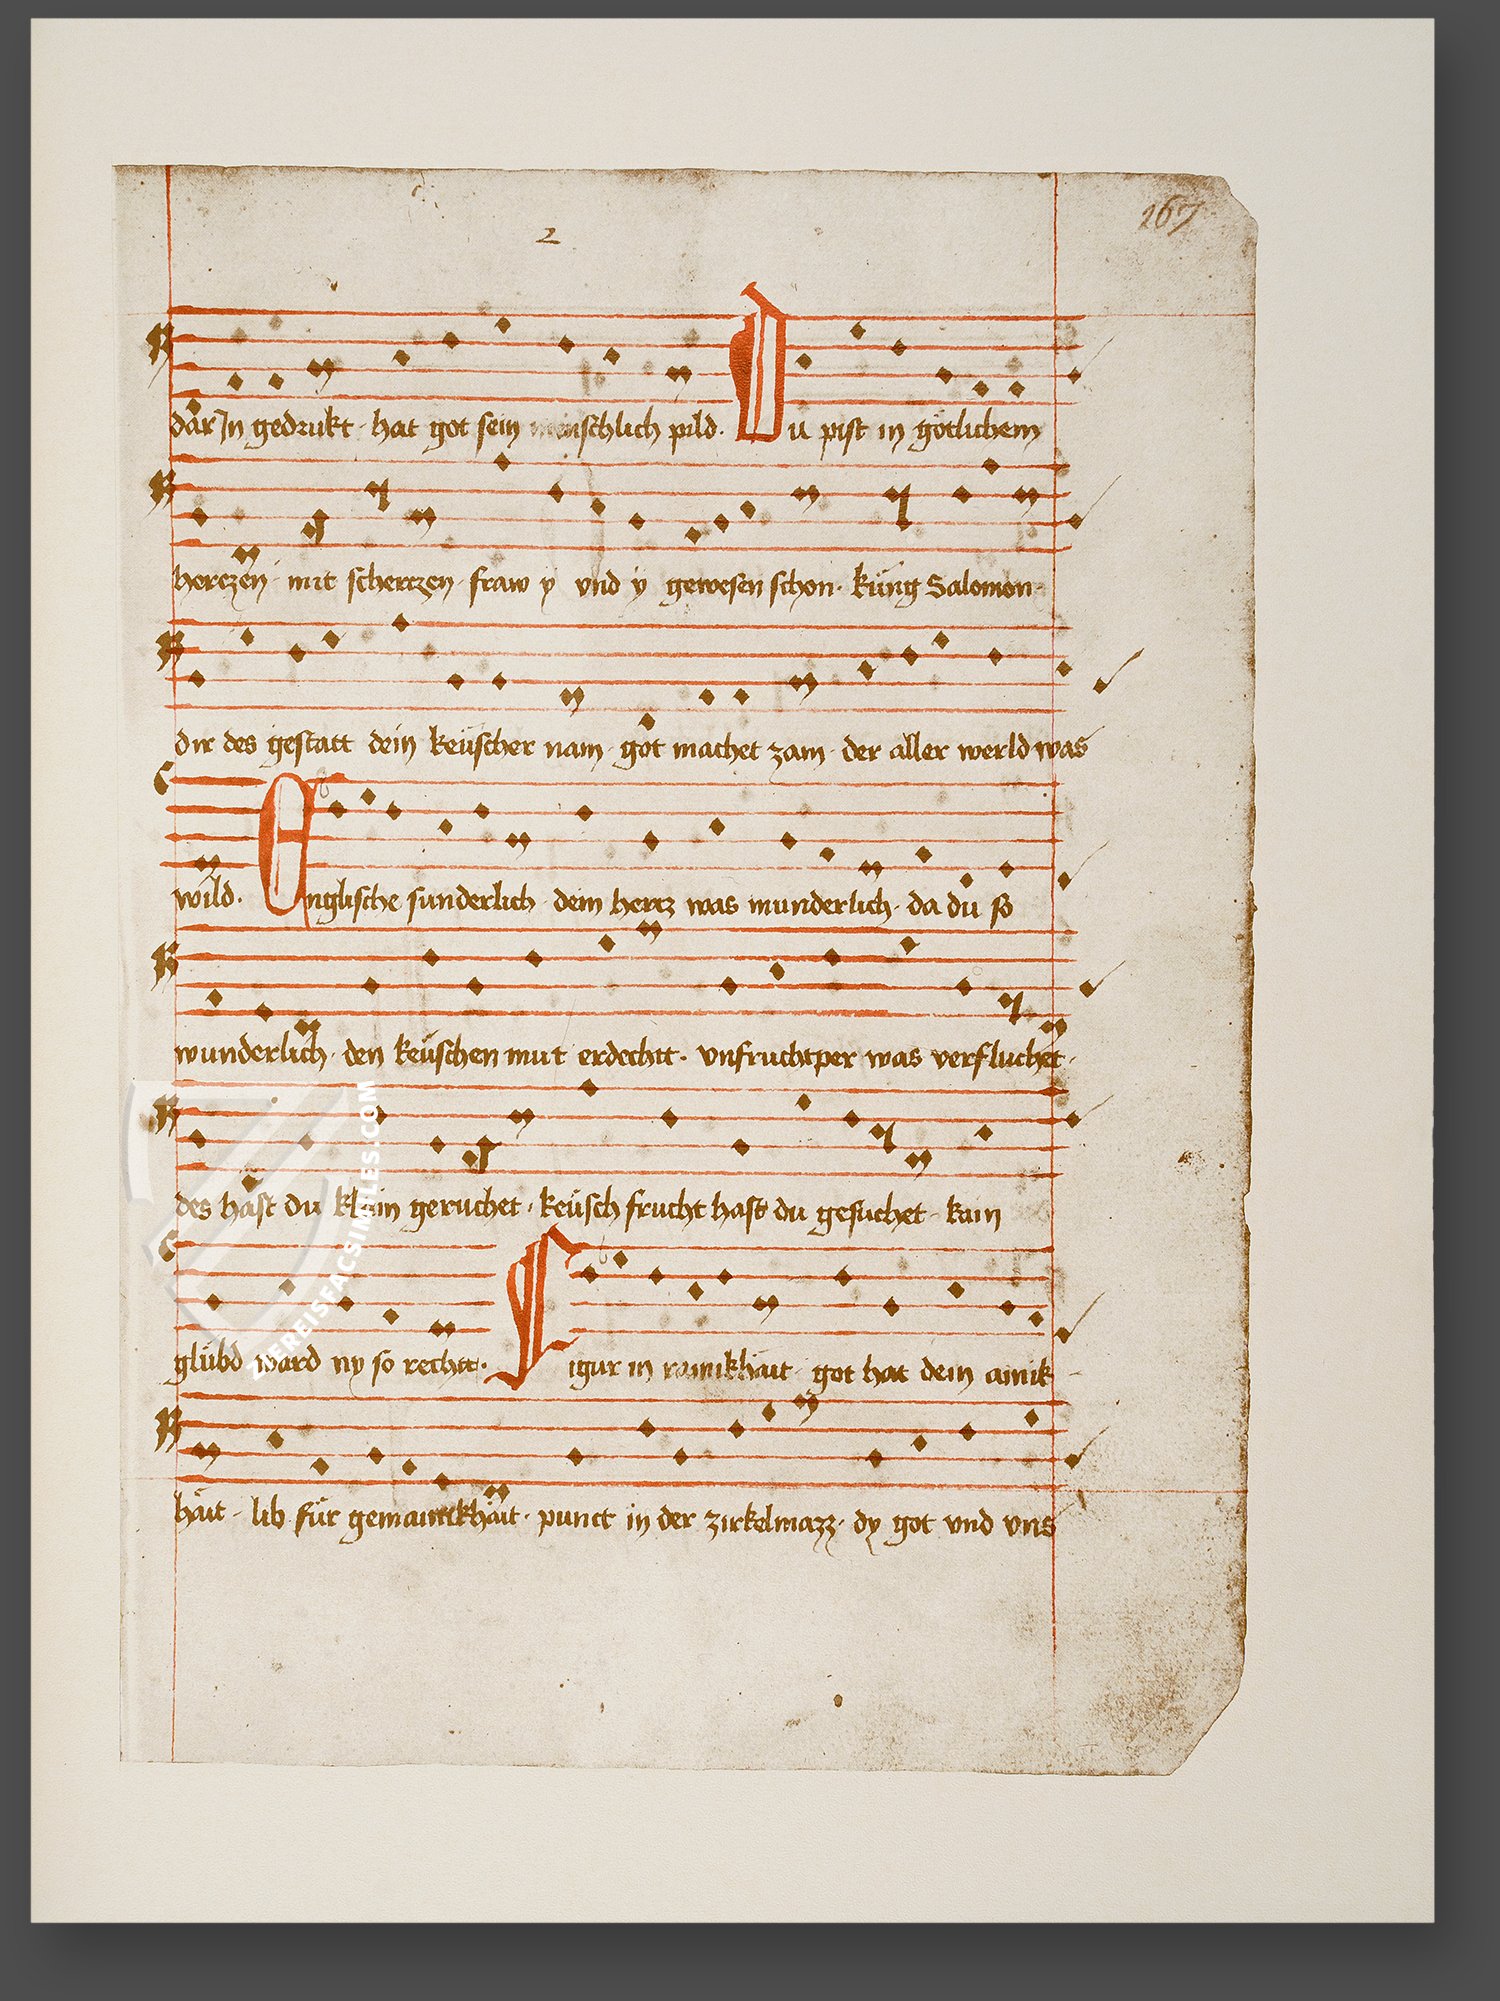 2
267
där Jn gedrukt · hat got sein menschlich pild · Du pist in götlichem
herczen · mit scherczen · fraw y vnd y gewesen schon · küng Salomon ·
dir des gestatt dein keüscher nam · got machet zam · der aller werld was
wild · Englische sunderlich · dein hercz was munderlich · da du so
wunderlich · den keüschen mut erdechtt · vnfruchtper was verfluchet ·
des hast du klain geruchet · keüsch frucht hast du gesuchet · kain
glübd ward ny so rechtt · Figur in ramikhait · got hat dein ainik
häit · lib für gemainckhäit · punct in der zirkelmazz · dy got vnd vns
ZIEREISFACSIMILES.COM